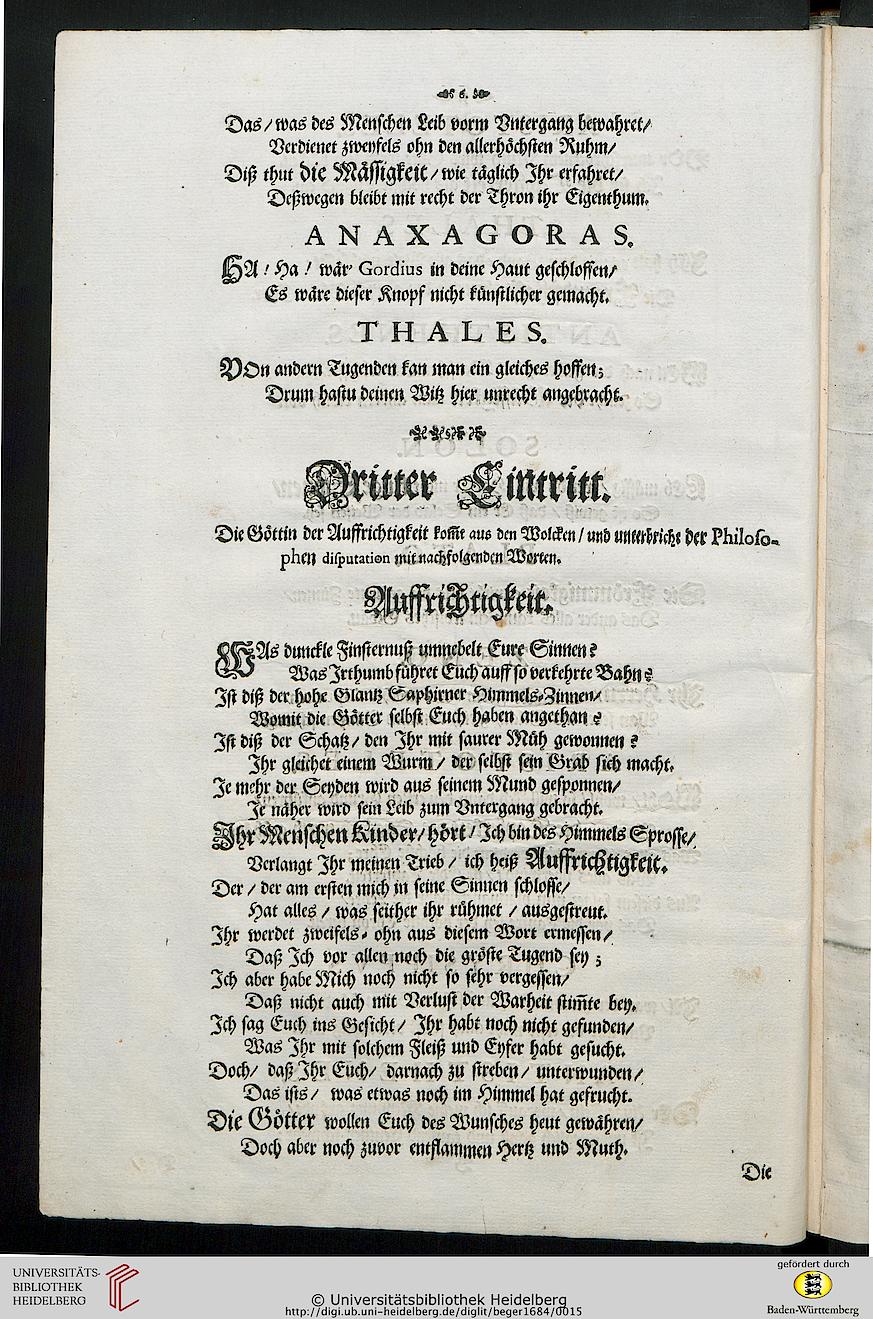 6.
Das / was des Menschen Leib vorm Vntergang bewahret /
Verdienet zweyfels ohn den allerhöchsten Ruhm /
Diß thut die Mässigkeit / wie täglich Ihr erfahret /
Deßwegen bleibt mit recht der Thron ihr Eigenthum.
ANAXAGORAS.
HA! Ha! wär Gordius in deine Haut geschlossen /
Es wäre dieser Knopf nicht künstlicher gemacht.
THALES.
VOn andern Tugenden kan man ein gleiches hoffen;
Drum hastu deinen Witz hier unrecht angebracht.
Dritter Eintritt.
Die Göttin der Auffrichtigkeit kom̃t aus den Wolcken / und unterbricht der Philoso-
phen disputation mit nachfolgenden Worten.
Auffrichtigkeit.
WAs dunckle Finsternuß umnebelt Eure Sinnen?
Was Irthumb führet Euch auff so verkehrte Bahn?
Ist diß der hohe Glantz Saphirner Himmels-Zinnen /
Womit die Götter selbst Euch haben angethan?
Ist diß der Schatz / den Ihr mit saurer Müh gewonnen?
Ihr gleichet einem Wurm / der selbst sein Grab sich macht.
Je mehr der Seyden wird aus seinem Mund gesponnen /
Je näher wird sein Leib zum Vntergang gebracht.
Ihr Menschen Kinder / hört / Ich bin des Himmels Sprosse /
Verlangt Ihr meinen Trieb / ich heiß Auffrichtigkeit.
Der / der am ersten mich in seine Sinnen schlosse /
Hat alles / was seither ihr rühmet / ausgestreut.
Ihr werdet zweifels-ohn aus diesem Wort ermessen /
Daß Ich vor allen noch die gröste Tugend sey;
Ich aber habe Mich noch nicht so sehr vergessen /
Daß nicht auch mit Verlust der Warheit stim̃te bey.
Ich sag Euch ins Gesicht / Ihr habt noch nicht gefunden /
Was Ihr mit solchem Fleiß und Eyfer habt gesucht.
Doch / daß Ihr Euch / darnach zu streben / unterwunden /
Das ists / was etwas noch im Himmel hat gefrucht.
Die Götter wollen Euch des Wunsches heut gewähren /
Doch aber noch zuvor entflammen Hertz und Muth.
Die
UNIVERSITÄTS-
BIBLIOTHEK
HEIDELBERG
© Universitätsbibliothek Heidelberg
http://digi.ub.uni-heidelberg.de/diglit/beger1684/0015
gefördert durch
Baden-Württemberg